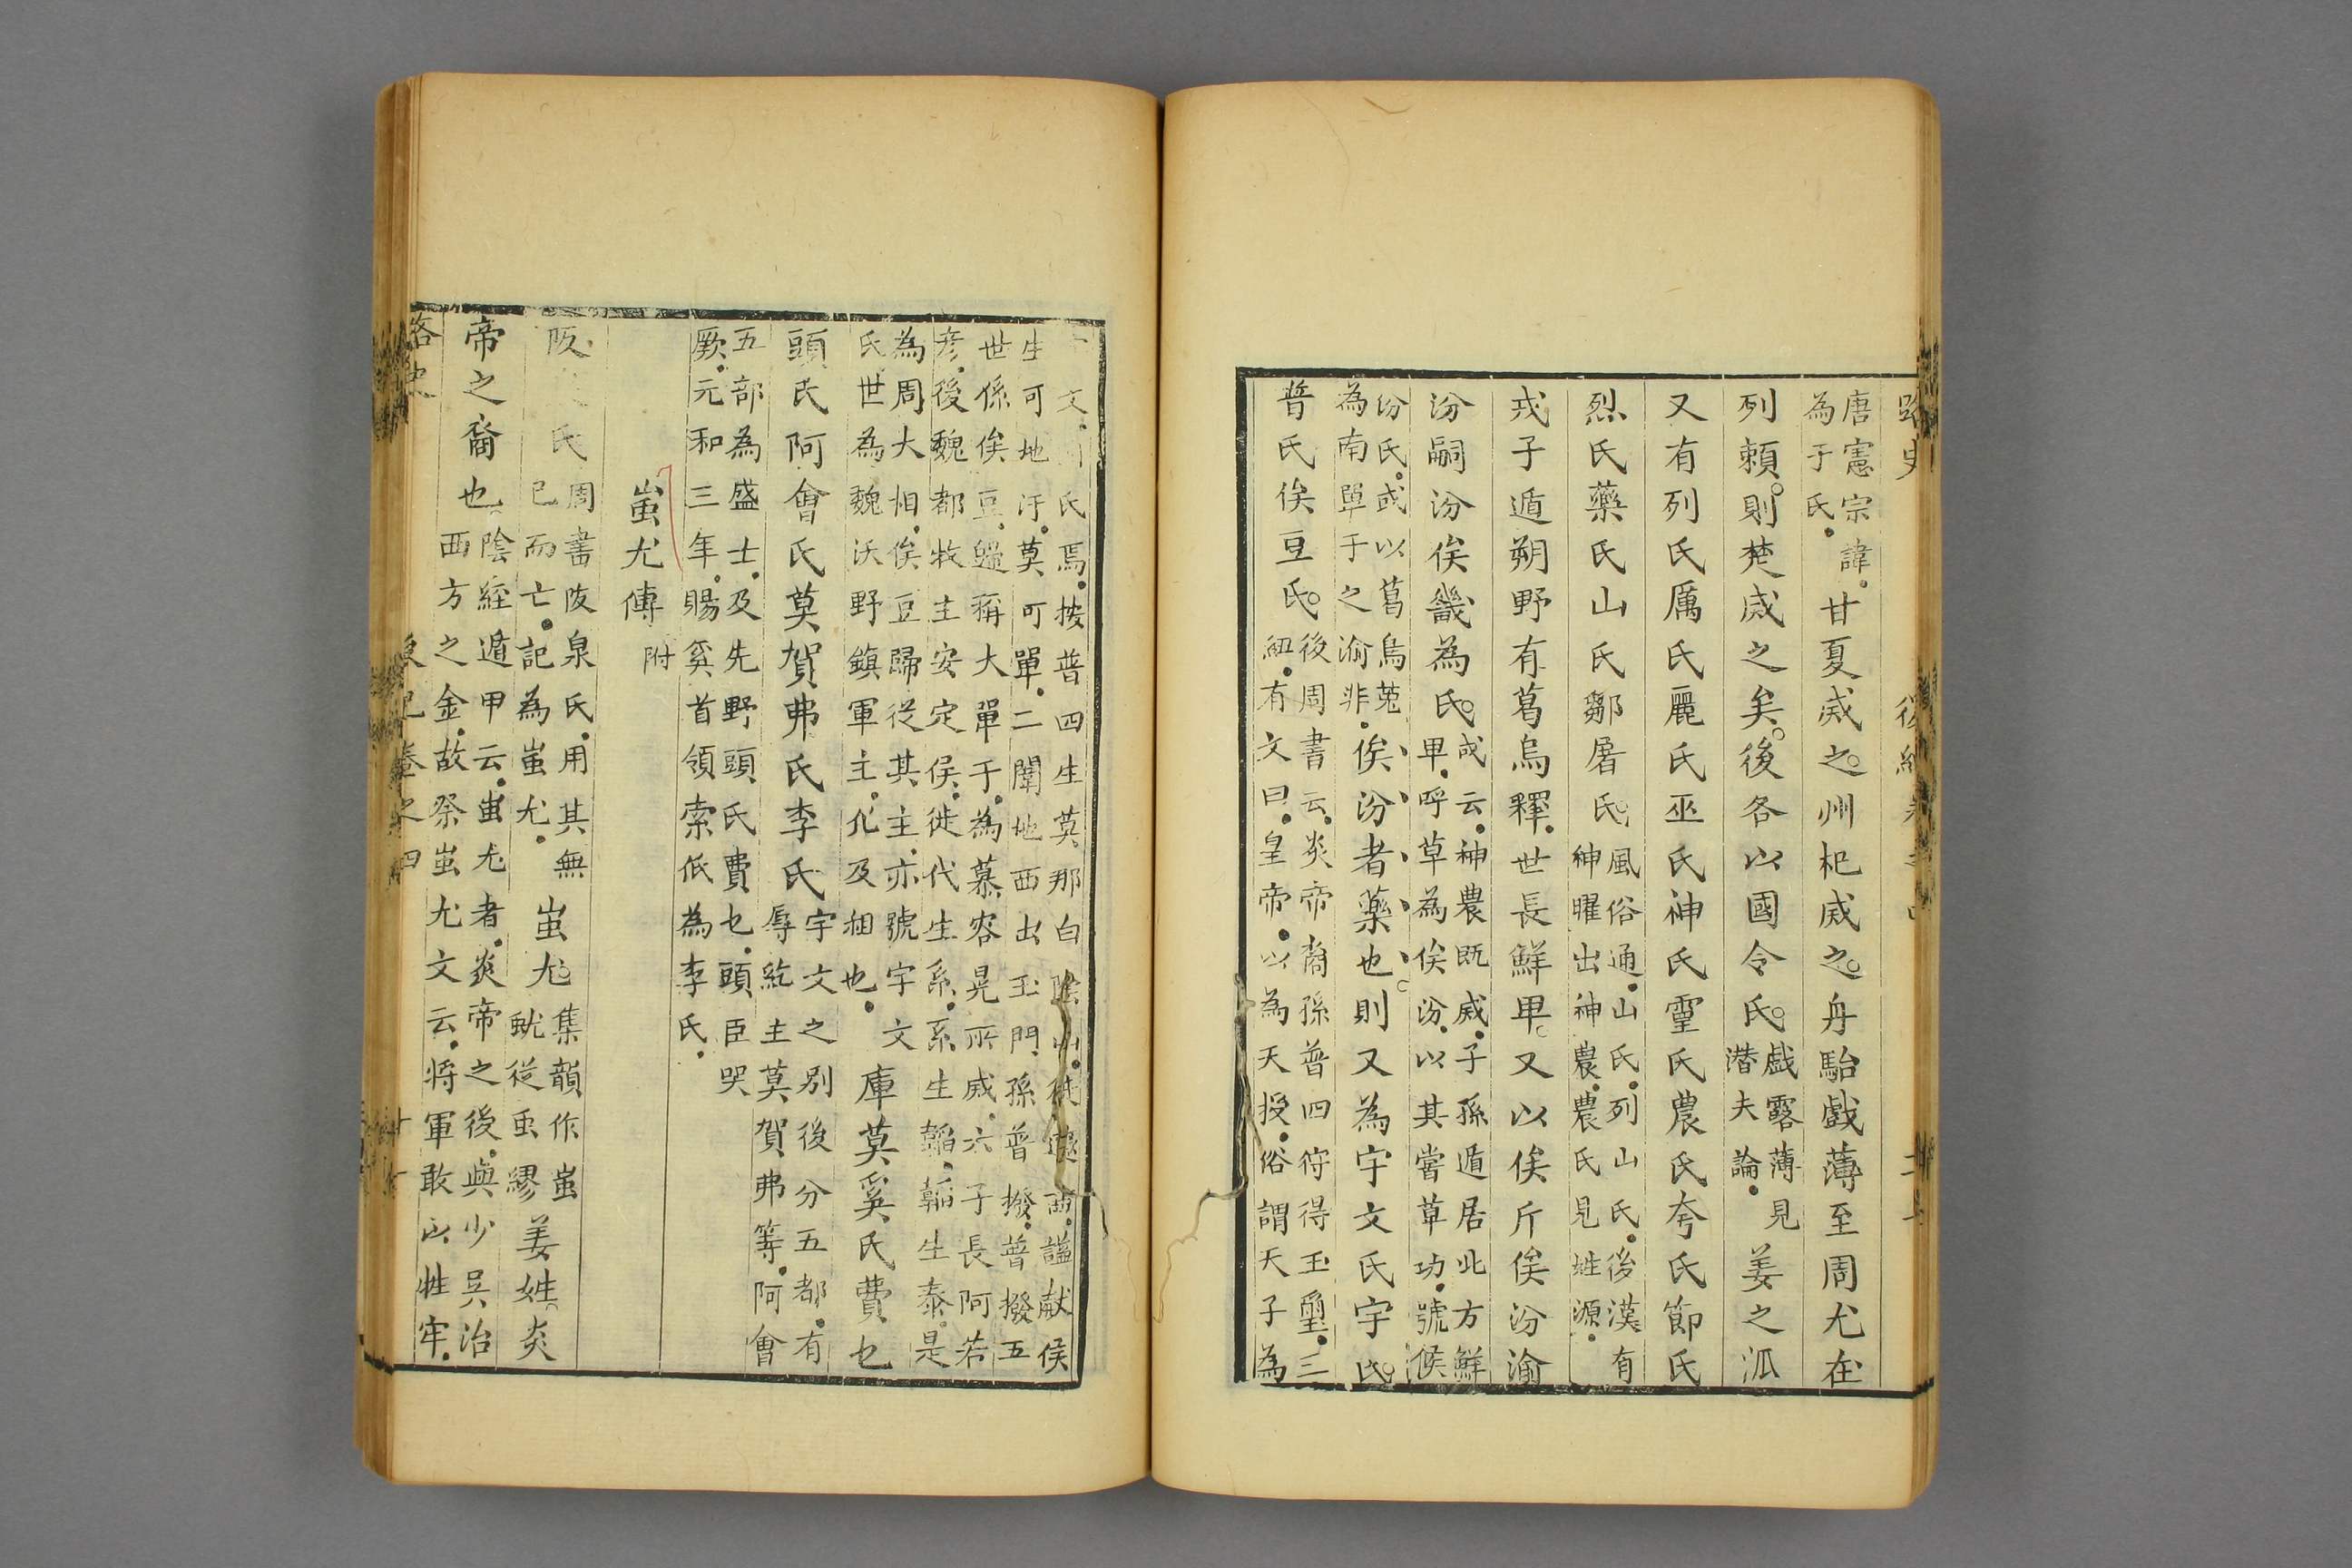 路史 後紀卷之四
唐憲宗諱
為于氏
甘夏滅之州杞滅之舟駘戲薄至周尤在
列賴則楚滅之矣後各以國令氏
戲露薄見
潜夫論
姜之派
又有列氏厲氏麗氏巫氏神氏靈氏農氏夸氏節氏
烈氏藥氏山氏鄒屠氏
風俗通山氏列山氏後漢有
神曜出神農農氏見姓源
戎子遁朔野有葛烏釋世長鮮卑又以俟斤俟汾渝
汾嗣汾俟畿為氏
或云神農既滅子孫遁居北方鮮
卑呼草為俟汾以其嘗草功號候
汾氏或以葛烏菟
為南單于之渝非
俟汾者藥也則又為宇文氏宇氏
普氏俟豆氏
後周書云炎帝裔孫普四符得玉璽三
紐有文曰皇帝以為天授俗謂天子為
文氏焉按普四生莫那自陰山徙遼西謚獻侯
生可地汙莫可單二闡地西出玉門孫普撥普撥五
世係俟豆歸稱大單于為慕容晃所滅六子長阿若
彥後魏都牧主安定侯徙代生系系生韜韜生泰是
為周大相俟豆歸從其主亦號宇文
氏世為魏沃野鎮軍主化及祖也
庫莫奚氏費乜
頭氏阿會氏莫賀弗氏李氏
宇文之別後分五都有
辱紇主莫賀弗等阿會
五部為盛士及先野頭氏費乜頭臣哭
厥元和三年賜奚首領索低為李氏
蚩尤傳 附
阪氏
周書阪泉氏用其無
已而亡記為蚩尤
蚩尤
集韻作蚩
蚘從虫繆
姜姓炎
帝之裔也
陰經遁甲云蚩尤者炎帝之後與少昊治
西方之金故祭蚩尤文云將軍敢以牲牢
路史 後紀卷之四